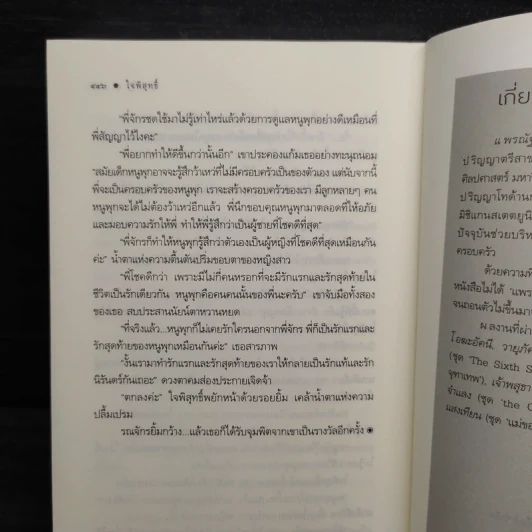 ๔๔๖ ● ใจพิสุทธิ์
“พี่จักรชดใช้มาไม่รู้เท่าไหร่แล้วด้วยการดูแลหนูพุกอย่างดีเหมือนที่
พี่สัญญาไว้ไงคะ”
“พี่อยากทำให้ดีขึ้นกว่านั้นอีก” เขาประคองแก้มเธออย่างทะนุถนอม
“สมัยเด็กหนูพุกอาจจะรู้สึกว้าเหว่ที่ไม่มีครอบครัวเป็นของตัวเอง แต่นับจากนี้
พี่จะเป็นครอบครัวของหนูพุก เราจะสร้างครอบครัวของเรา มีลูกหลายๆ คน
หนูพุกจะได้ไม่ต้องว้าเหว่อีกแล้ว พี่นึกขอบคุณหนูพุกมาตลอดที่ให้อภัย
และมอบความรักให้พี่ ทำให้พี่รู้สึกว่าเป็นผู้ชายที่โชคดีที่สุด”
“พี่จักรก็ทำให้หนูพุกรู้สึกว่าตัวเองเป็นผู้หญิงที่โชคดีที่สุดเหมือนกัน
ค่ะ” น้ำตาแห่งความตื้นตันปริ่มขอบตาของหญิงสาว
“พี่โชคดีกว่า เพราะมีไม่กี่คนหรอกที่จะมีรักแรกและรักสุดท้ายใน
ชีวิตเป็นรักเดียวกัน หนูพุกคือคนคนนั้นของพี่นะครับ” เขาจับมือทั้งสอง
ของเธอ สบประสานนัยน์ตาหวานหยด
“ที่จริงแล้ว...หนูพุกก็ไม่เคยรักใครนอกจากพี่จักร พี่ก็เป็นรักแรกและ
รักสุดท้ายของหนูพุกเหมือนกันค่ะ” เธอสารภาพ
“งั้นเรามาทำรักแรกและรักสุดท้ายของเราให้กลายเป็นรักแท้และรัก
นิรันดร์กันเถอะ” ดวงตาคมส่องประกายเจิดจ้า
“ตกลงค่ะ” ใจพิสุทธิ์พยักหน้าด้วยรอยยิ้ม เคล้าน้ำตาแห่งความ
ปลื้มเปรม
รณจักรยิ้มกว้าง...แล้วเธอก็ได้รับจุมพิตจากเขาเป็นรางวัลอีกครั้ง
เกี่ย
แพรณัฐ
ปริญญาตรีสาข
ศิลปศาสตร์ มหา
ปริญญาโทด้านก
มิชิแกนสเตตยูนิ
ปัจจุบันช่วยบริห
ครอบครัว
ด้วยความที่
หนังสือไม่ได้ “แพร
จนถอนตัวไม่ขึ้นมา
ผลงานที่ผ่า
โอฆะอัคนี, วายุภัค
(ชุด ‘The Sixth S
จุฑาเทพ’), เจ้าพสุธา
จำแลง (ชุด ‘the C
แสงเทียน (ชุด ‘แม่ขอ